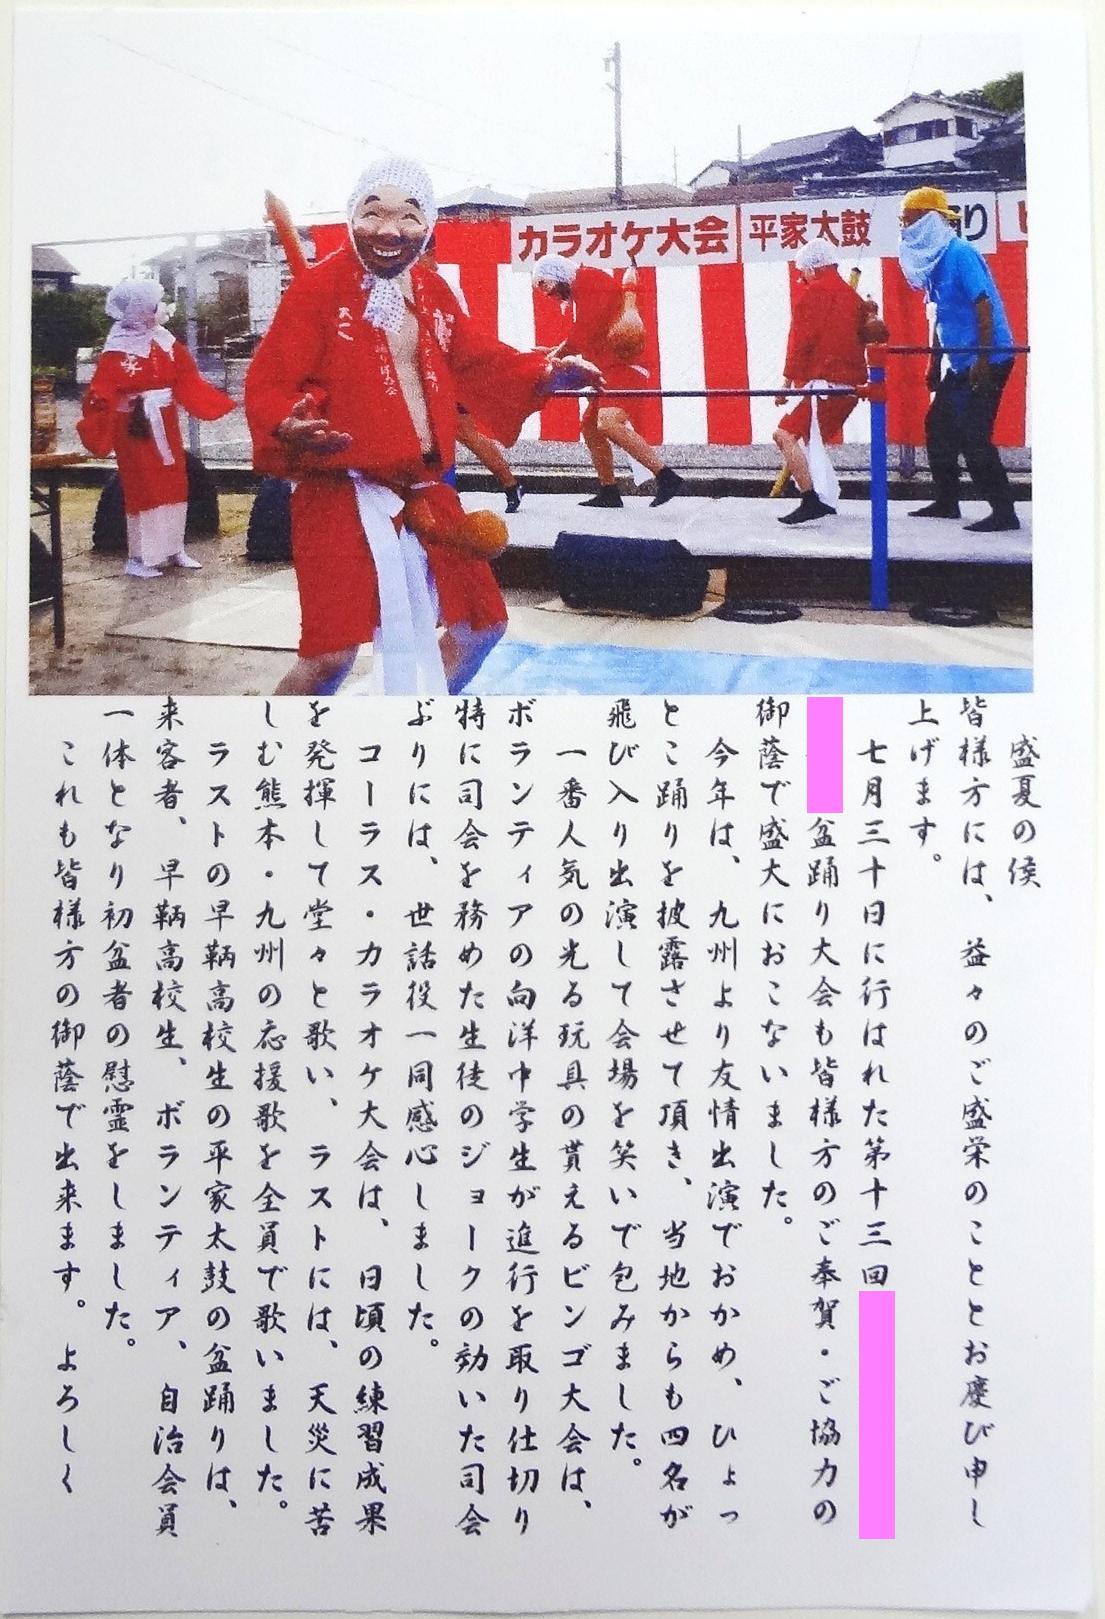 カラオケ大会
平家太鼓
盛夏の候
皆様方には、益々のご盛栄のこととお慶び申し
上げます。
七月三十日に行はれた第十三回
盆踊り大会も皆様方のご奉賀・ご協力の
御蔭で盛大におこないました。
今年は、九州より友情出演でおかめ、ひょっ
とこ踊りを披露させて頂き、当地からも四名が
飛び入り出演して会場を笑いで包みました。
一番人気の光る玩具の貰えるビンゴ大会は、
ボランティアの向洋中学生が進行を取り仕切り
特に司会を務めた生徒のジョークの効いた司会
ぶりには、世話役一同感心しました。
コーラス・カラオケ大会は、日頃の練習成果
を発揮して堂々と歌い、ラストには、天災に苦
しむ熊本・九州の応援歌を全員で歌いました。
ラストの早鞆高校生の平家太鼓の盆踊りは、
来客者、早鞆高校生、ボランティア、自治会員
一体となり初盆者の慰霊をしました。
これも皆様方の御蔭で出来ます。よろしく